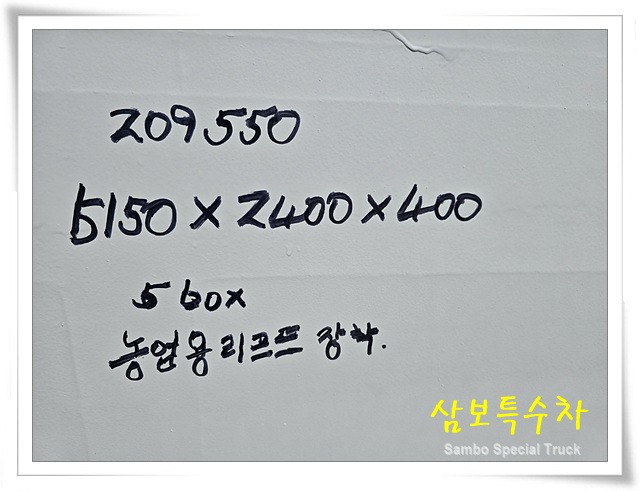 209550
5150 x 2400 x 400
5 box
농업용 리프트 장착.
삼보특수차
Sambo Special Truck